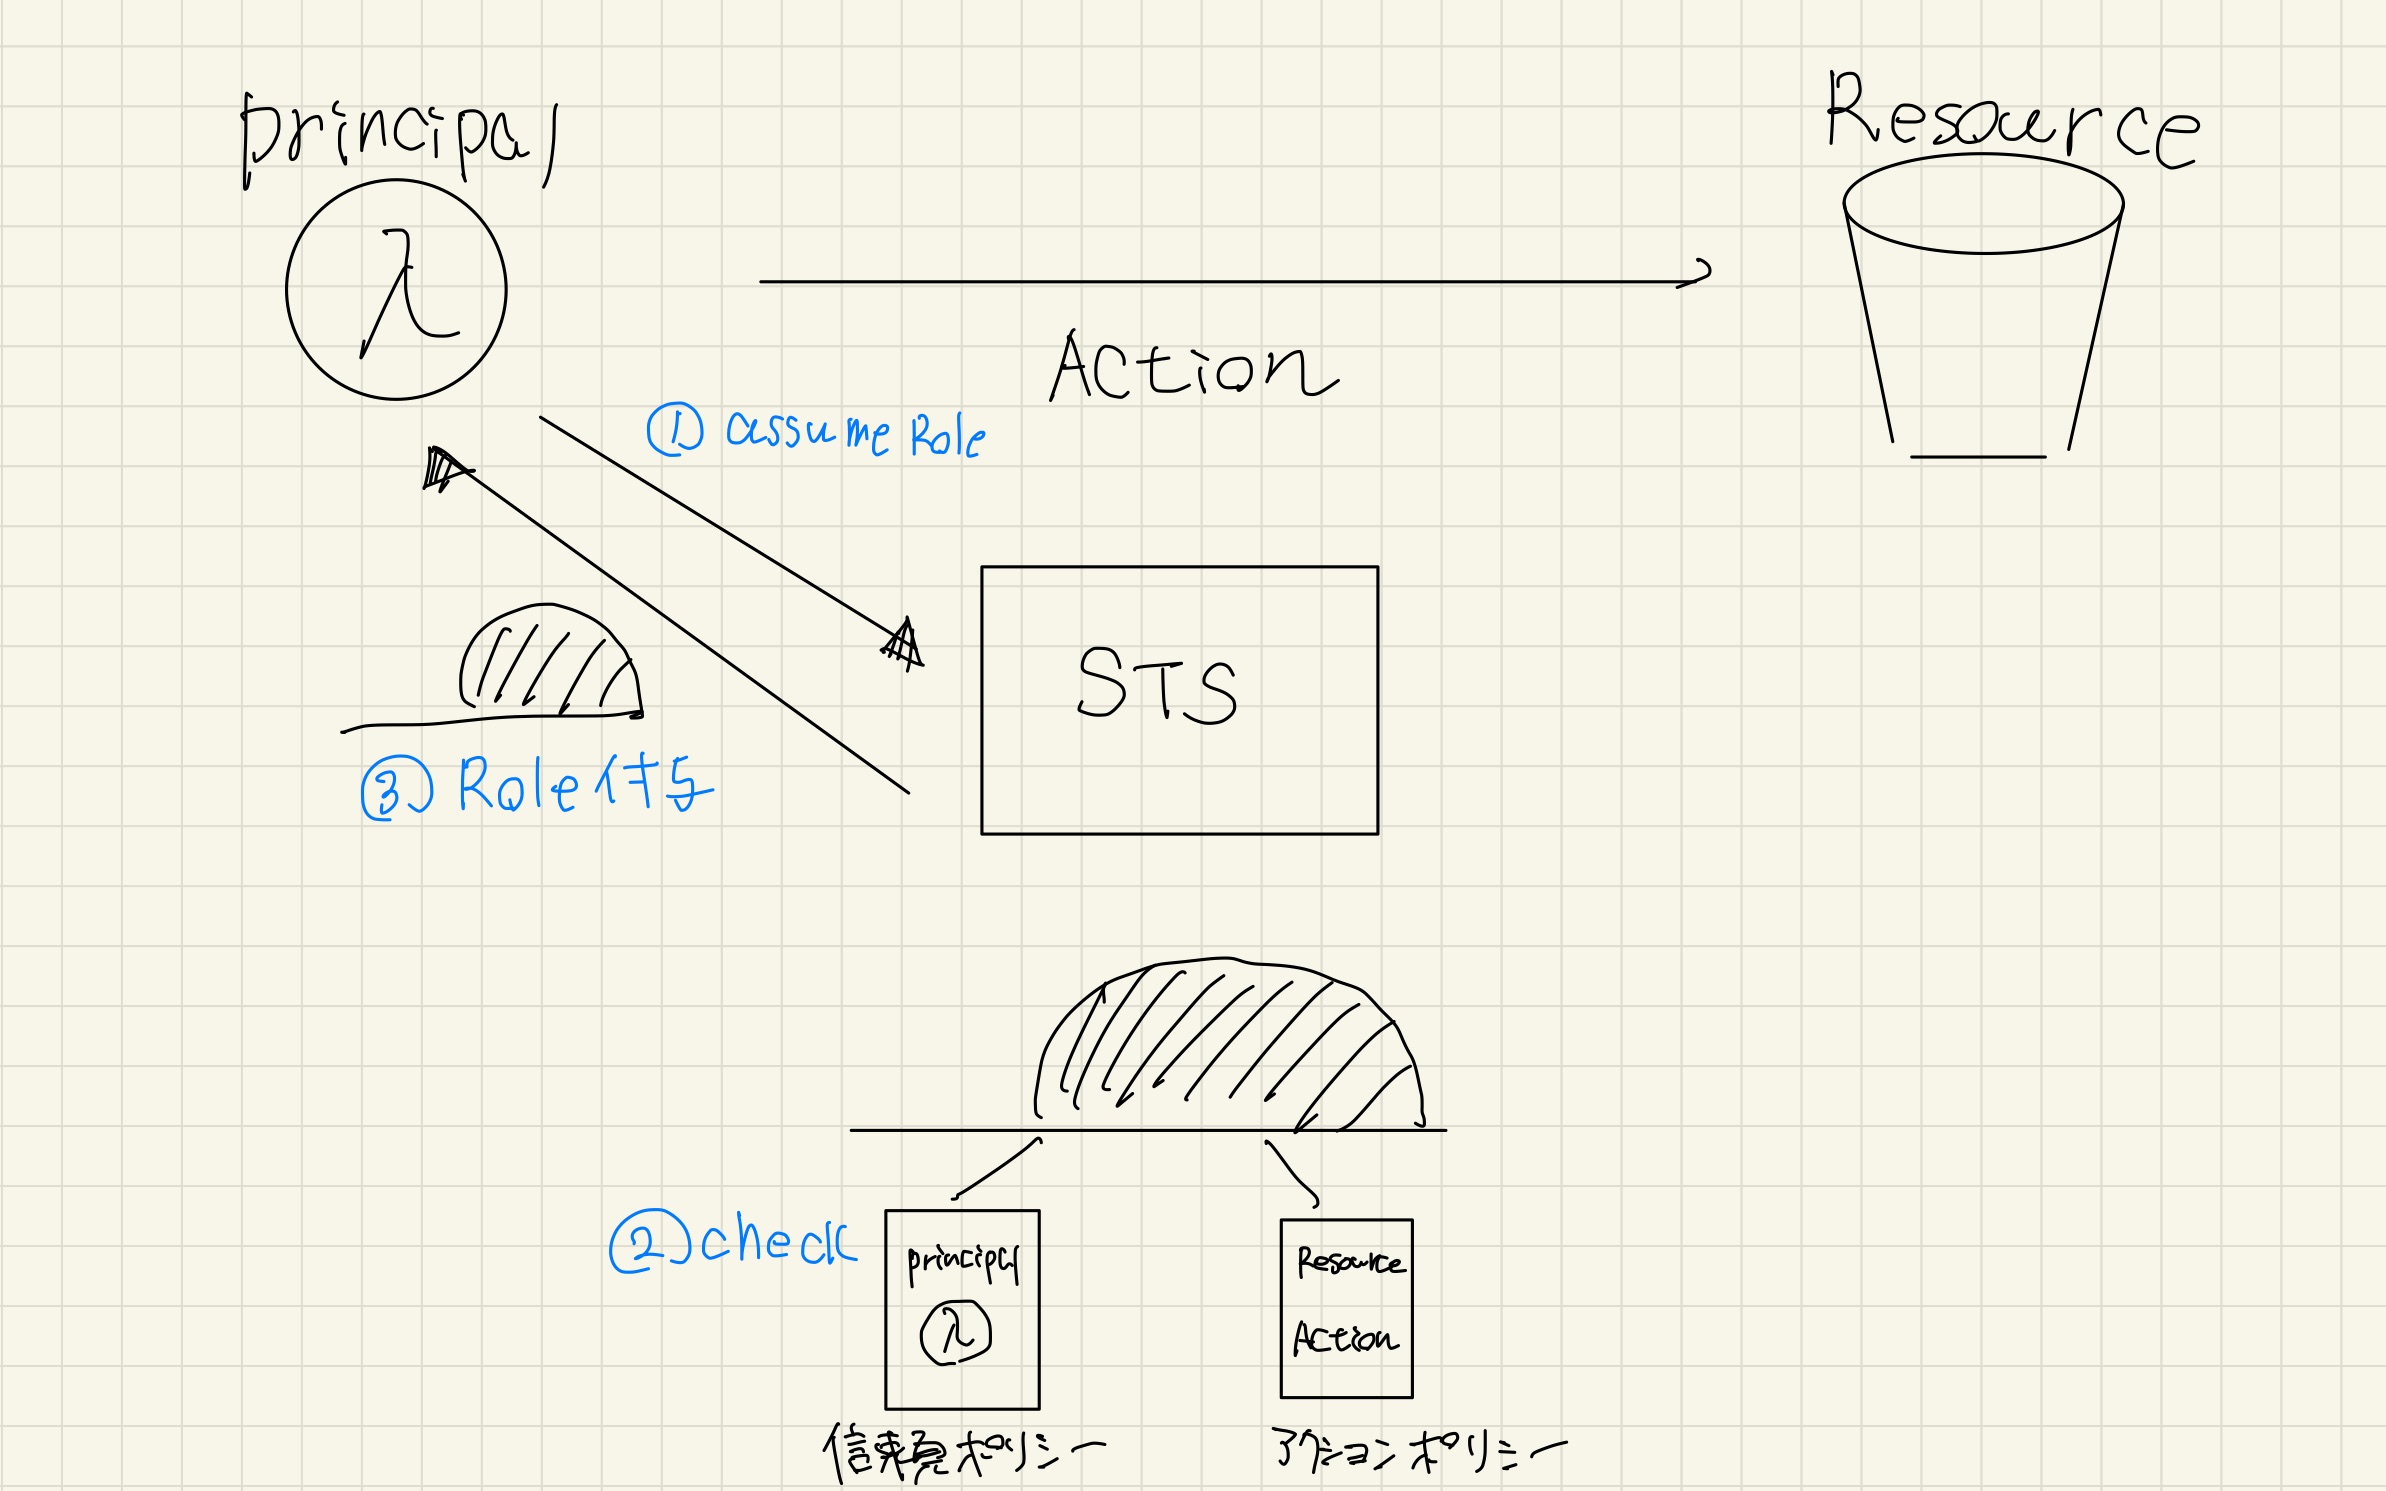 principal
Resource
λ
Action
① assume Role
STS
③ Role付与
② check
principal
λ
Resource
Action
信頼ポリシー
アクションポリシー